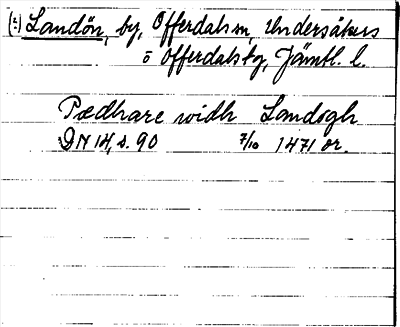 (2.) Landön, by, Offerdals sn, Undersåkers
o Offerdals tg, Jämtl. l.
Pædhare widh Landøgh
DN 14, s. 90 7/10 1471 or.